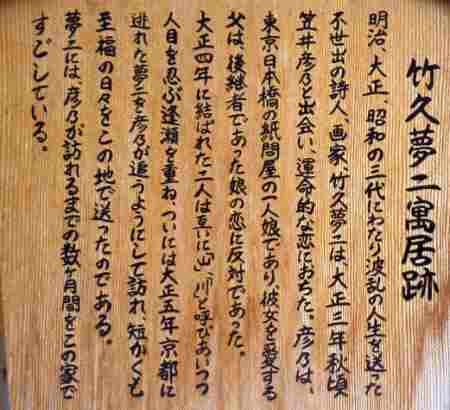 竹久夢二寓居跡
明治、大正、昭和の三代にわたり波乱の人生を送った
不世出の詩人、画家、竹久夢二は、大正三年秋頃
笠井彦乃と出会い、運命的な恋におちた。彦乃は、
東京日本橋の紙問屋の一人娘であり、彼女を愛する
父は、後継者であった娘の恋に反対であった。
大正四年に結ばれた二人は真に「山」、「川」と呼びあいつつ
人目を忍ぶ逢瀬を重ね、ついには大正五年京都に
逃れた夢二を彦乃が追うようにして訪れ、短かくも
至福の日々をこの地で送ったのである。
夢二は、彦乃が訪れるまでの数ヶ月間をこの家で
すごしている。